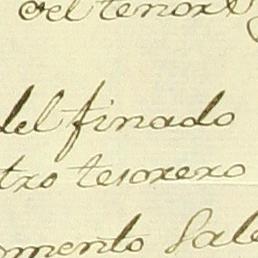 del tenor
del finado
tro tesorero
omento Sale